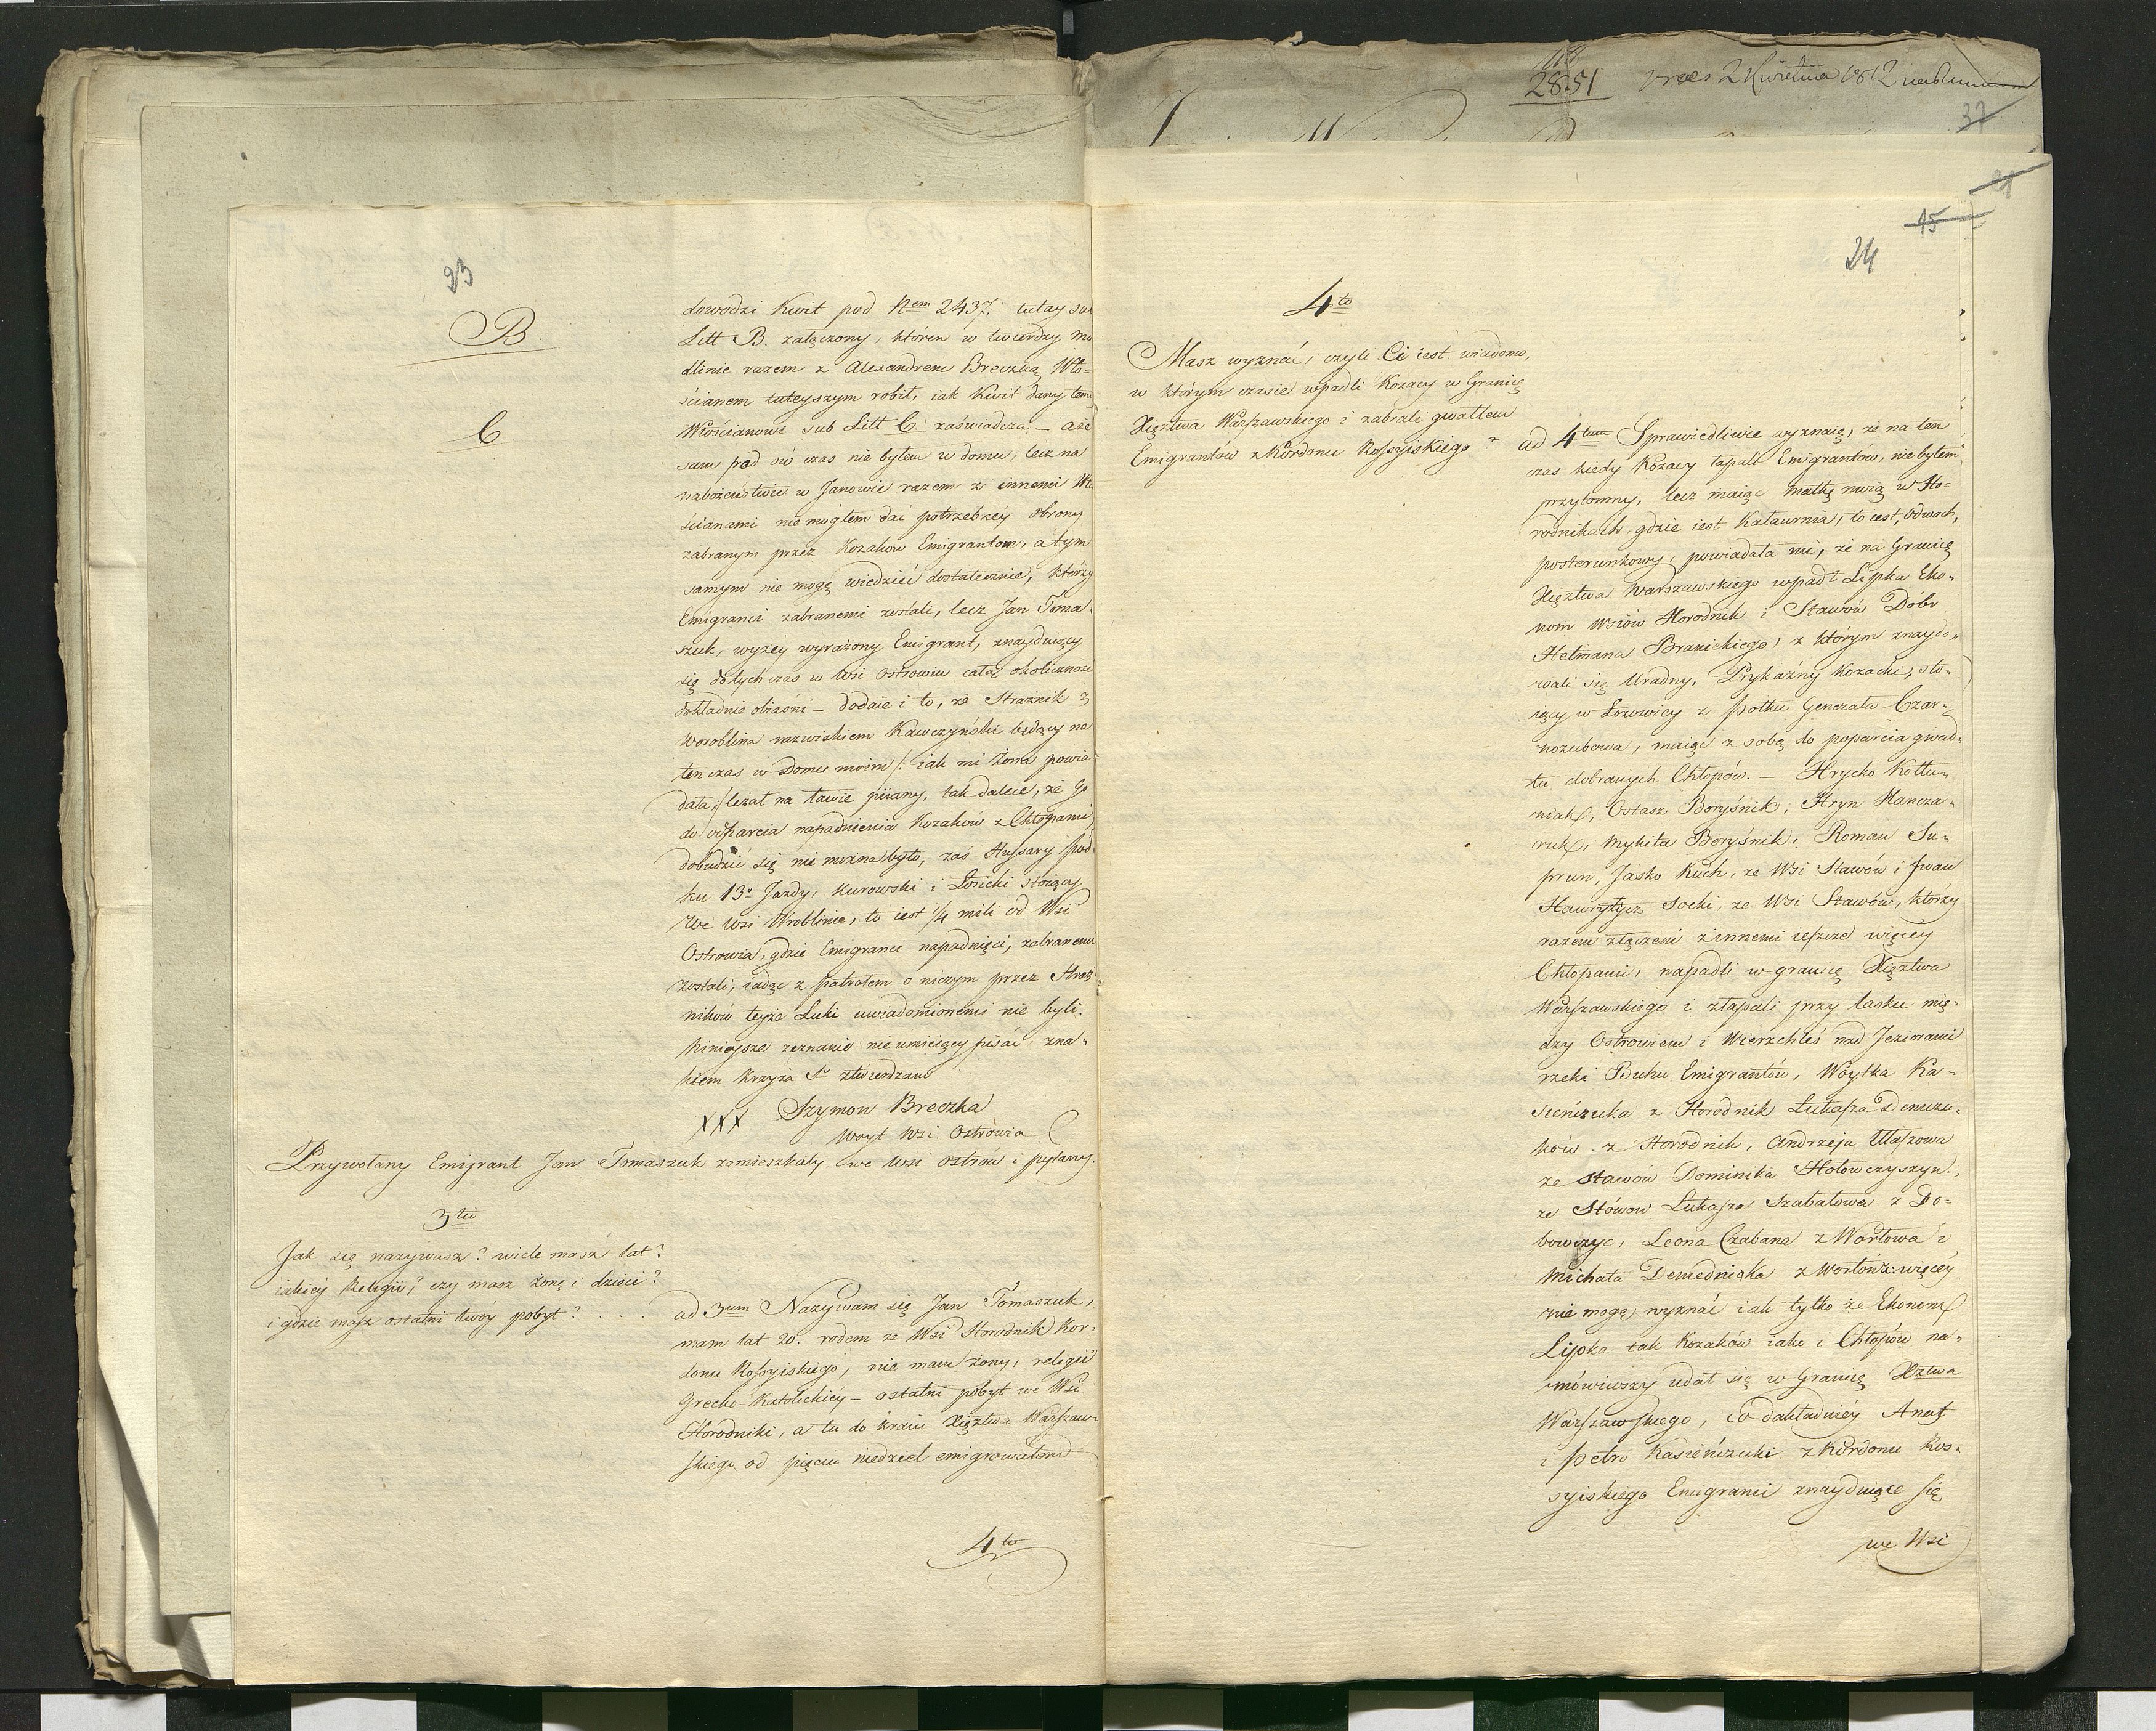 23
B.
C
dowodzi Kwit pod Nem 2437. tutay sub
Litt B. załączony, któren w twierdzy Mo
dlinie razem z Alexandrem Breczką Wło-
ścianem tuteyszym robił, iak Kwit dany temu
Włościanowi sub Litt C. zaświadcza – a że
sam pod ów czas nie byłem w domu, lecz na
nabożeństwie w Janowie razem z innemi Wło
ścianami nie mogłem dać potrzebney obrony
zabranym przez Kozaków Emigrantom, a tym
samym nie mogę wiedzieć dostatecznie, którzy
Emigranci zabranemi zostali, lecz Jan Toma
szuk, wyżey wyrażony Emigrant, znayduiący
się dotych czas w Wsi Ostrowiu całą okoliczność
dokładnie obiaśni – dodaie i to, że Strażnik z
Woroblina nazwiskiem Kawczyński będący na
ten czas w Domu moim /: iak mi żona powia
dała :/ leżał na ławie piiany, tak dalece, że go
do odparcia napadnienia Kozaków z Chłopami
dobudzić się nie można było, zaś Hussary Poł
ku 13o Jazdy, Kurowski i Łosicki stoiący
We Wsi Wroblinie, to iest 1/4 mili od Wsi
Ostrowia, gdzie Emigranci napadnięci, zabranemi
zostali, iadąc z patrolem o niczym przez Straż
ników teyże Luki uwiadomionemi nie byli.
Ninieysze zeznanie nieumieiący pisać, zna-
kiem Krzyża S. ztwierdzam
XXX Szymon Breczka
Woyt Wsi Ostrowia
Przywołany Emigrant Jan Tomaszuk zamieszkały we Wsi Ostrów i pytany.
3tio
Jak się nazywasz? wiele masz lat?
iakiey Religii? czy masz żonę i dzieci?
i gdzie masz ostatni twóy pobyt? . . . .
ad 3um Nazywam się Jan Tomaszuk,
mam lat 20. rodem ze Wsi Horodnik Kor-
donu Rossyiskiego, nie mam żony, religii
Grecko-Katolickiey – ostatni pobyt we Wsi
Horodniki, a tu do kraiu Xięztwa Warszaw-
skiego od pięciu niedziel emigrowałem
4to
2851 Przes 2 Kwietnia 1812
37
21
15
24
4to
Masz wyznać, czyli Ci iest wiadomo,
w którym czasie wpadli Kozacy w Granicę
Xięztwa Warszawskiego i zabrali gwałtem
Emigrantów z Kordonu Rossyiskiego?
ad 4tum Sprawiedliwie wyznaię, że na ten
czas kiedy Kozacy łapali Emigrantów, nie byłem
przytomny, lecz maiąc matkę moią w Ho-
rodnikach, gdzie iest Kataurnia, to iest, Odwach,
posterunkowy, powiadała mi, że na Granicę
Xięztwa Warszawskiego wpadł Lipka Eko-
nom Wsiów Horodnik i Stawów Dóbr
Hetmana Branickiego, z którym znaydo-
wali się Uradny, Prykaźny Kozacki, sto-
iący w Łozowicy z Połku Generała Czar-
nozubowa, maiąc z sobą do poparcia gwał-
tu dobranych Chłopów. – Hrycko Kołtu-
niak, Ostasz Boryśnik, Hryn Hancza-
ruk, Mykita Boryśnik, Roman Su-
prun, Jasko Kuch, ze Wsi Stawów i Iwan
Hawryłycz Socki, ze Wsi Stawów, którzy
razem złączeni z innemi ieszcze więcey
Chłopami, napadli w granicę Xięztwa
Warszawskiego i złapali przy lasku mię-
dzy Ostrowiem i Wierzchleś nad Jeziorami
rzeki Buhu Emigrantów, Woytka Ka-
sieńczuka z Horodnik Łukasza Demczu-
ków z Horodnik, Andrzeja Ułaszowa
ze Stawów Dominika Hołowczyszyn.,
ze Stówow Łukasza Szabatowa z Do-
bowzyc, Leona Czabana z Worłowa i
Michała Demedniaka z Worłów: więcey
nie mogę wyznać iak tylko że Ekonom
Lipka tak Kozaków iako i Chłopów na-
mówiwszy udał się w Granicę Xztwa
Warszawskiego, co dakładniey Anast
i Petro Kasieńczuki z Kordonu Ros-
syiskiego Emigranci znayduiące się
we Wsi